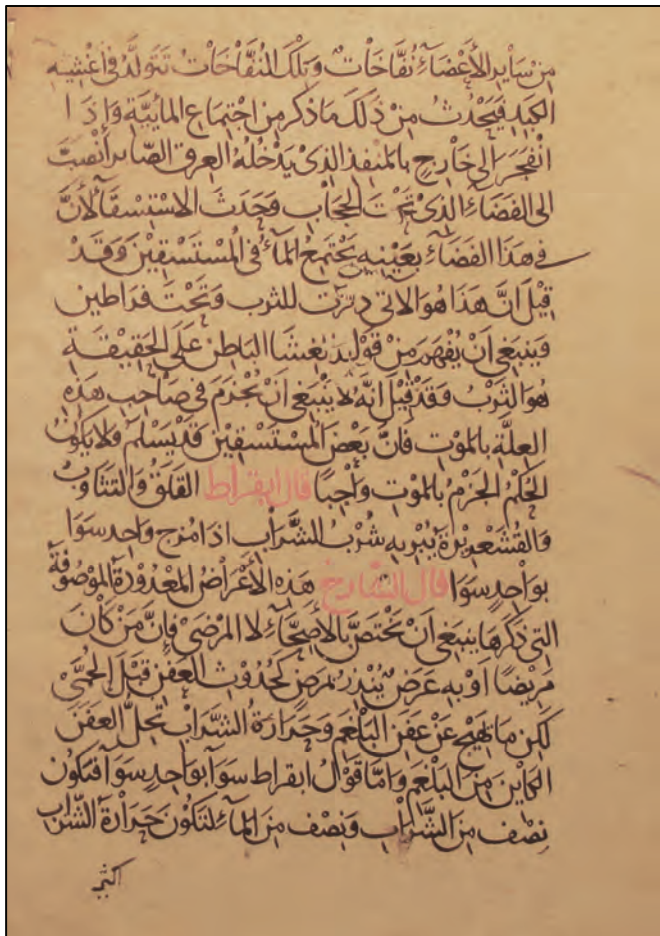 من سآئر الأعضآء نُفّاخات وتلك النفّاخات تتولّد فى اغشيه
الكبد فيحدث من ذلك ما ذكر من اجتماع المائيّة واذا
انفجرت الى خارج بالمنفذ الذى يدخله العرق الصاير انصبّت
الى الفضآء الذى تحت الحجاب وحدث الاستسقآء لأنّ
فى هذا الفضآء بعينه يجتمع المآء فى المستسقين وقد
قيل انّ هذا هو الاتى للثرب وتحت
وينبغى ان يفهم من قوله بغشا الباطن على الحقيقة
هو الثرب وقد قيل انّه لا ينبغى ان يجزم فى صاحب هذه
العلّة بالموت فانّ بعض المستسقين قد يسلم ولا يكون
الحكم الجزم بالموت واجبًا قال ابقراط القلق والتثاوب
والقشعريرة يُبريه شرب الشّراب اذا مُزج واحد سَوا
بواحد سَوا قال الشارح هذه الأعراض المعدودة الموصوفة
التى ذكرها ينبغى ان تختصّ بالأصحّآء لا المرضى فإنّ من كان
مريضًا او به عرض يُنذر بمرض كحدوث العفن قبل الحمّى
لكن ما تهيج عن عفن البلغم وحرارة الشراب تحلّ العفن
الكاين من البلغم وامّا قول ابقراط سوآ بواحد سوآ فيكون
نصف من الشّراب ونصف من المآء لتكون حرارة الشراب
اكثر